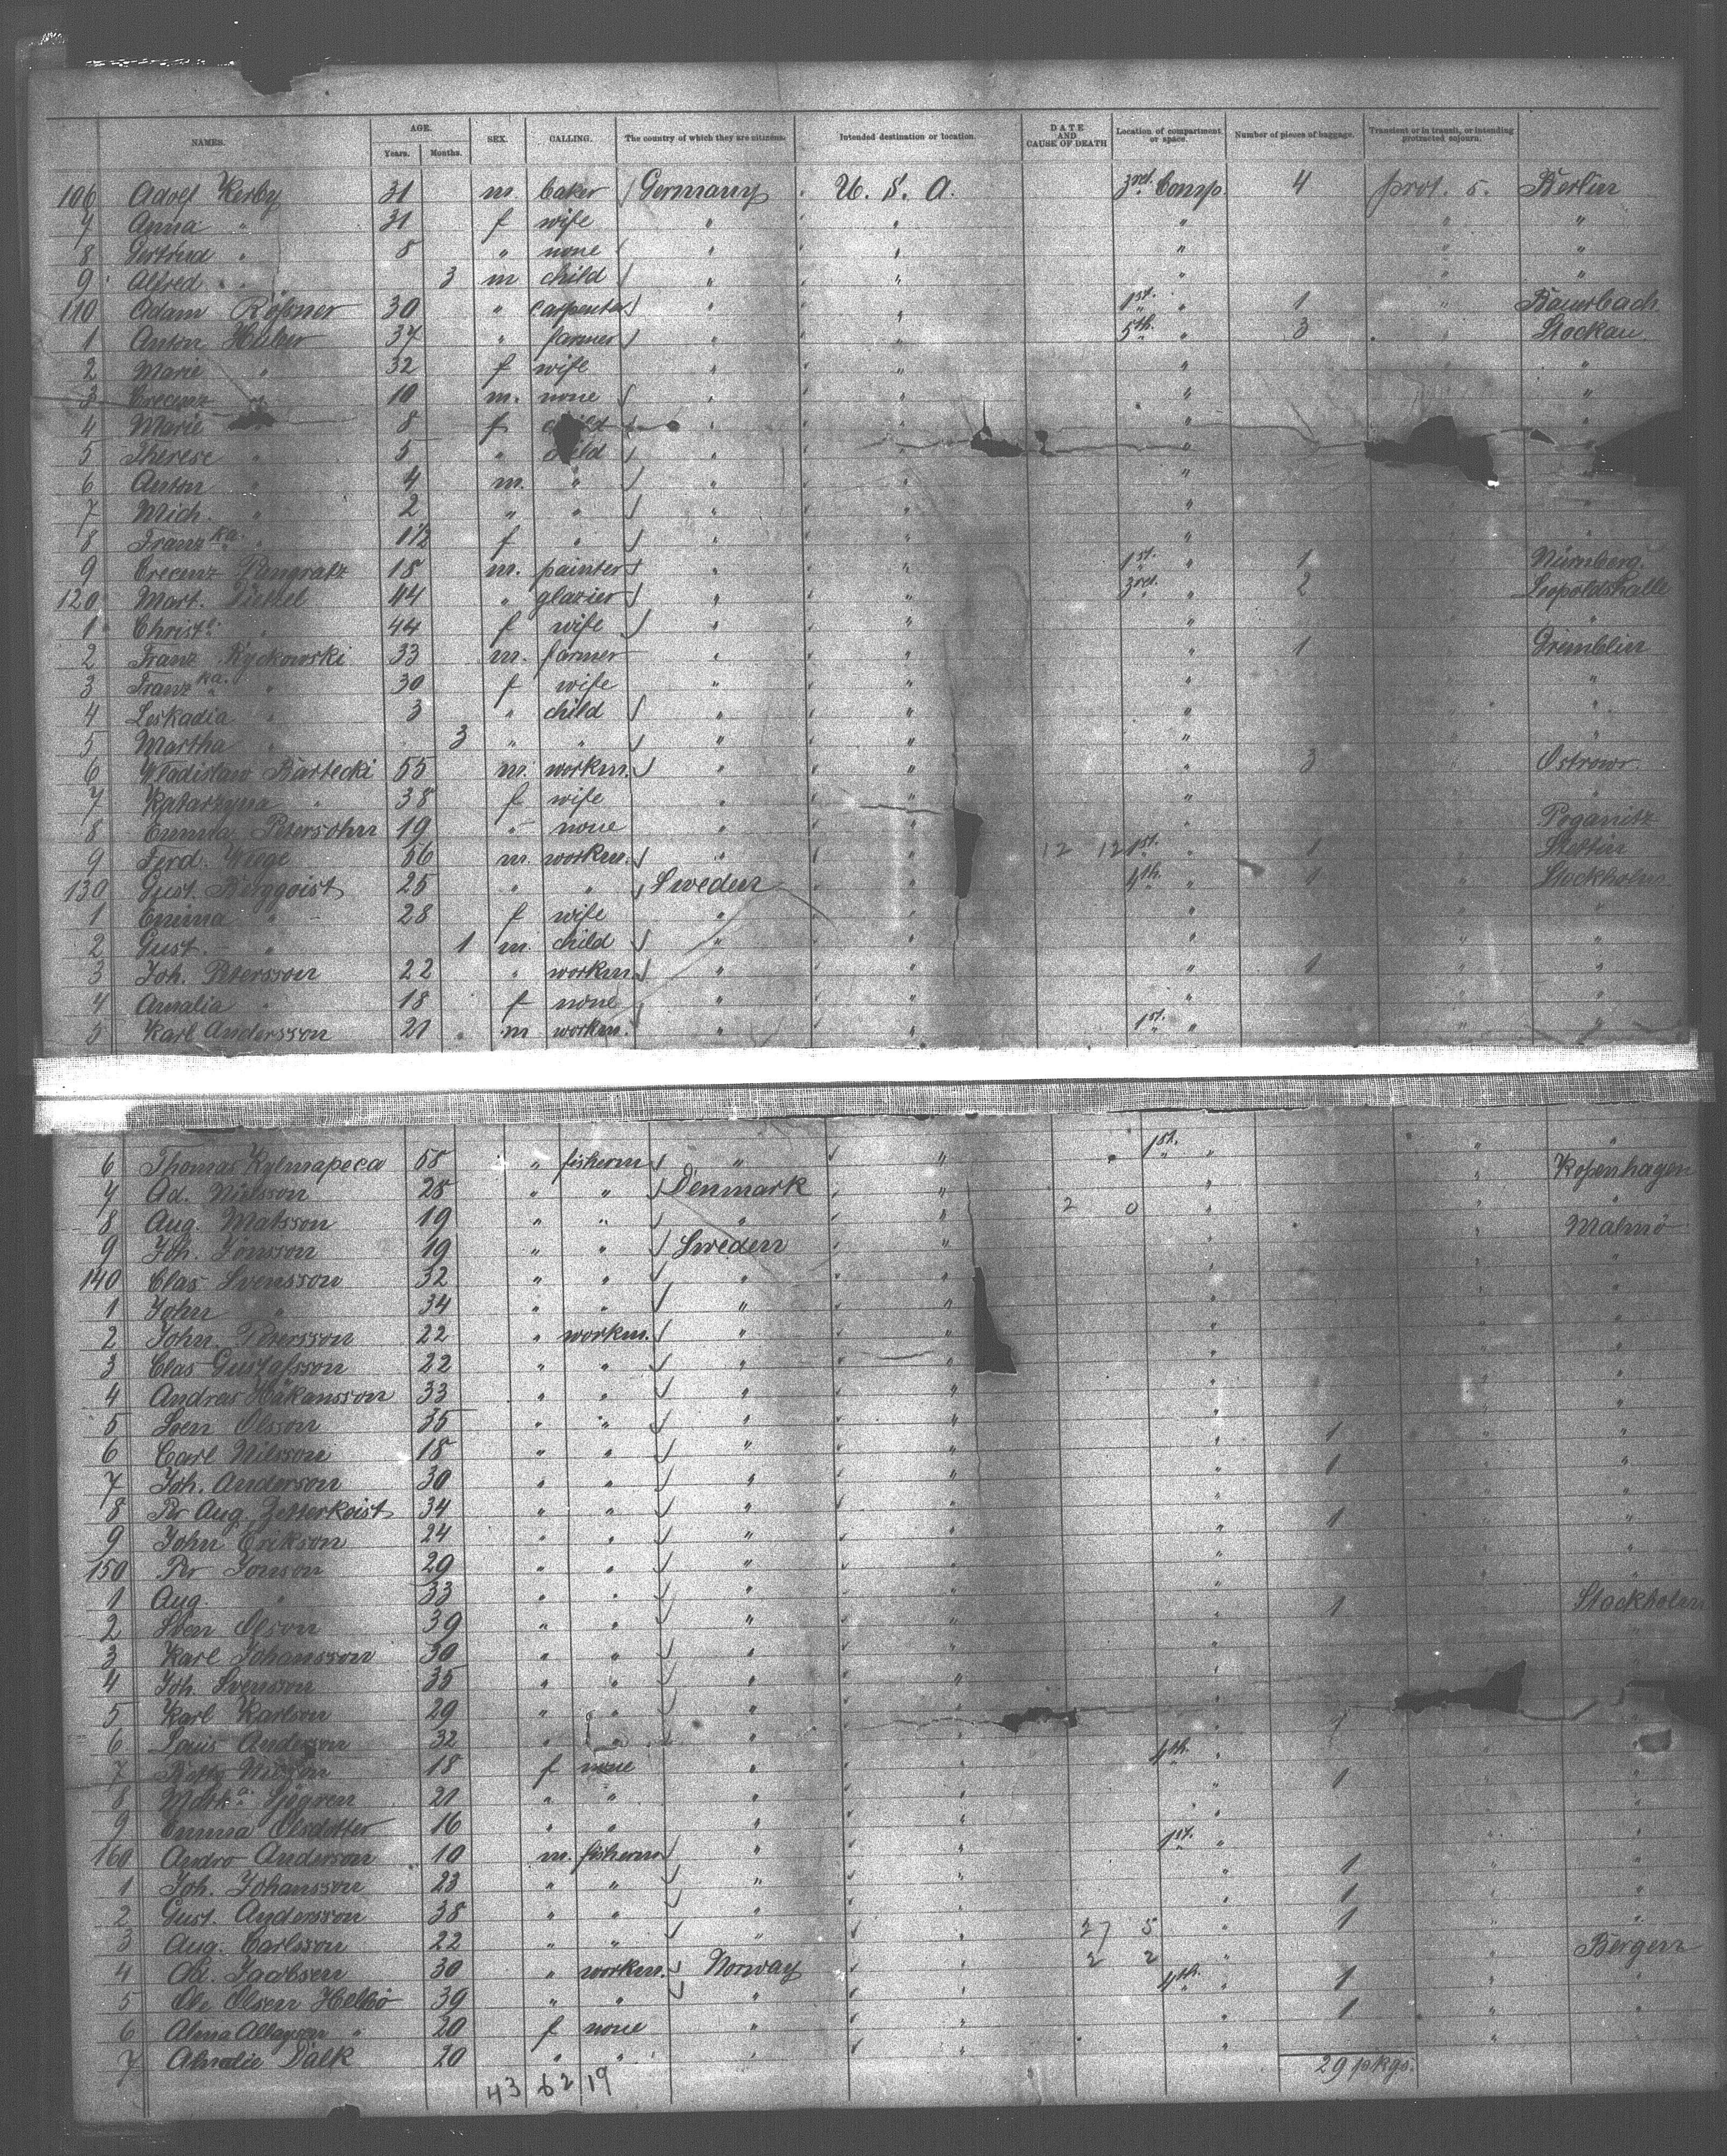 NAMES. AGE. Years. Months. SEX. CALLING. The country of which they are citizens. Intended destination or location. DATE AND CAUSE OF DEATH Location of compartment or space. Number of pieces of baggage. Transient or in transit, or intending protracted sojourn.
106 Adolf Kerby 31 m baker Germany U. S. A. 3rd. Comp. 4 prot. s. Berlin
7 Anna " 31 f wife " " " " "
8 Gertrud " 8 " none " " " " "
9 Alfred " 3 m child " " " " "
110 Adam Roßner 30 " carpenter " " 1st. " 1 " Bauerbach
1 Anton Huber 37 " farmer " " 5th. " 3 " Stockau
2 Marie " 32 f wife " " " "
3 Crecenz " 10 m. none " " " "
4 Marie " 8 f child " " "
5 Therese " 5 " child " " "
6 Anton " 4 m. " " " "
7 Mich. " 2 " " " " " "
8 Franzka. " 1 1/2 f " " " " "
9 Crecenz Pangratz 18 m. painter " " 1st. " 1 Nürnberg.
120 Mart. 44 " glazier " " 3rd. " 2 Leopoldshalle
1 Christ. " 44 f wife " " " "
2 Franz Ryckowski 33 m. farmer " " " 1 Dremblin
3 Franzka. " 30 f wife " " " "
4 Leskadia " 3 " child " " " "
5 Martha " 3 " " " " " "
6 Wladislaw Bartecki 55 m. workm. " " " 3 Ostrowr
7 Katarzyna " 38 f wife " " " "
8 Emma Petersohn 19 " none " " " Poganitz
9 Ferd. Wiege 56 m. workm. " " 12 12 1st. " 1 Stettin
130 Gust. Bergqoist 25 " " Sweden " " 4th. " 1 Stockholm
1 Emma " 28 f wife " " " " "
2 Gust. " 1 m. child " " " " "
3 Joh. Petersson 22 " workm. " " " 1 " "
4 Amalia " 18 f none " " " " "
5 Karl Andersson 21 m workm. " " 1st. " " "
6 Thomas Kylmapeca 58 " fisherm " " 1st. " " "
7 Ad. Nielsson 28 " " Denmark " " " Kopenhagen
8 Aug. Matsson 19 " " " " 2 0 " " "
9 Joh. Jönsson 19 " " Sweden " " " Malmö
140 Clas Svensson 32 " " " " " "
1 John " 34 " " " " " "
2 John Petersson 22 " workm. " " " "
3 Clas Gustafsson 22 " " " " " "
4 Andras Håkansson 33 " " " " " "
5 Sven Olsson 35 " " " " " "
6 Carl Nilsson 18 " " " " " 1 " "
7 Joh. Anderson 30 " " " " " 1 " "
8 Per Aug. Zetterkoist 34 " " " " " "
9 John Erikson 24 " " " " " 1 " "
150 Per Jonson 29 " " " " " "
1 Aug. " 33 " " " " " "
2 Sven Olson 39 " " " " " 1 Stockholm
3 Karl Johansson 30 " " " " " "
4 Joh. Svensson 35 " " " " " "
5 Karl Karlson 29 " " " "
6 Louis Anderson 32 " " " " " 1
7 18 f none " " 4th. "
8 Sjögren 21 " " " " " 1 "
9 Emma 16 " " " " " "
160 Andro Anderson 10 m. fisherm " " 1st. " "
1 Joh. Johansson 23 " " " " " 1 " "
2 Gust. Andersson 38 " " " " " 1 " "
3 Aug. Carlsson 22 " " " " 27 5 " 1 " "
4 Ol. Jacobsen 30 " workm. Norway " 2 2 " Bergen
5 Ole Olsen Helbö 39 " " " " 4th. " 1 " "
6 Alma " 20 f none " " " 1 " "
7 Amalie Dalk 20 " " " " " " "
43 62 19 29 pkgs.